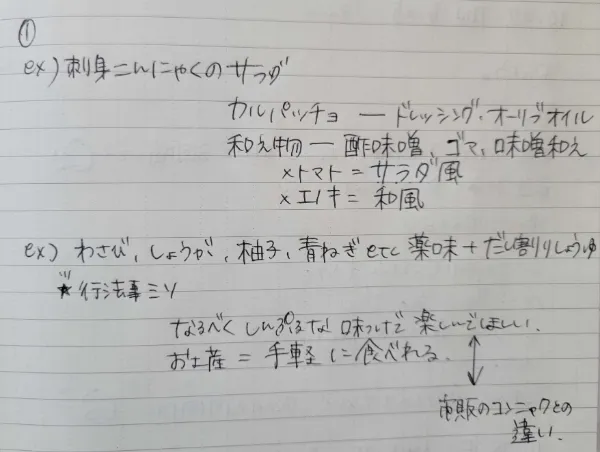 ①
ex) 刺身こんにゃくのサラダ
カルパッチョ ― ドレッシング・オーリブオイル
和え物 ― 酢味噌、ゴマ、味噌和え
×トマト = サラダ風
×エノキ = 和風
ex) わさび、しょうが、柚子、青ねぎ etc 薬味 + だし割りしょうゆ
★行法事ミソ
なるべく しんぷるな 味つけで 楽しんでほしい.
お土産 = 手軽に食べれる.
市販のコンニャクとの
違い.